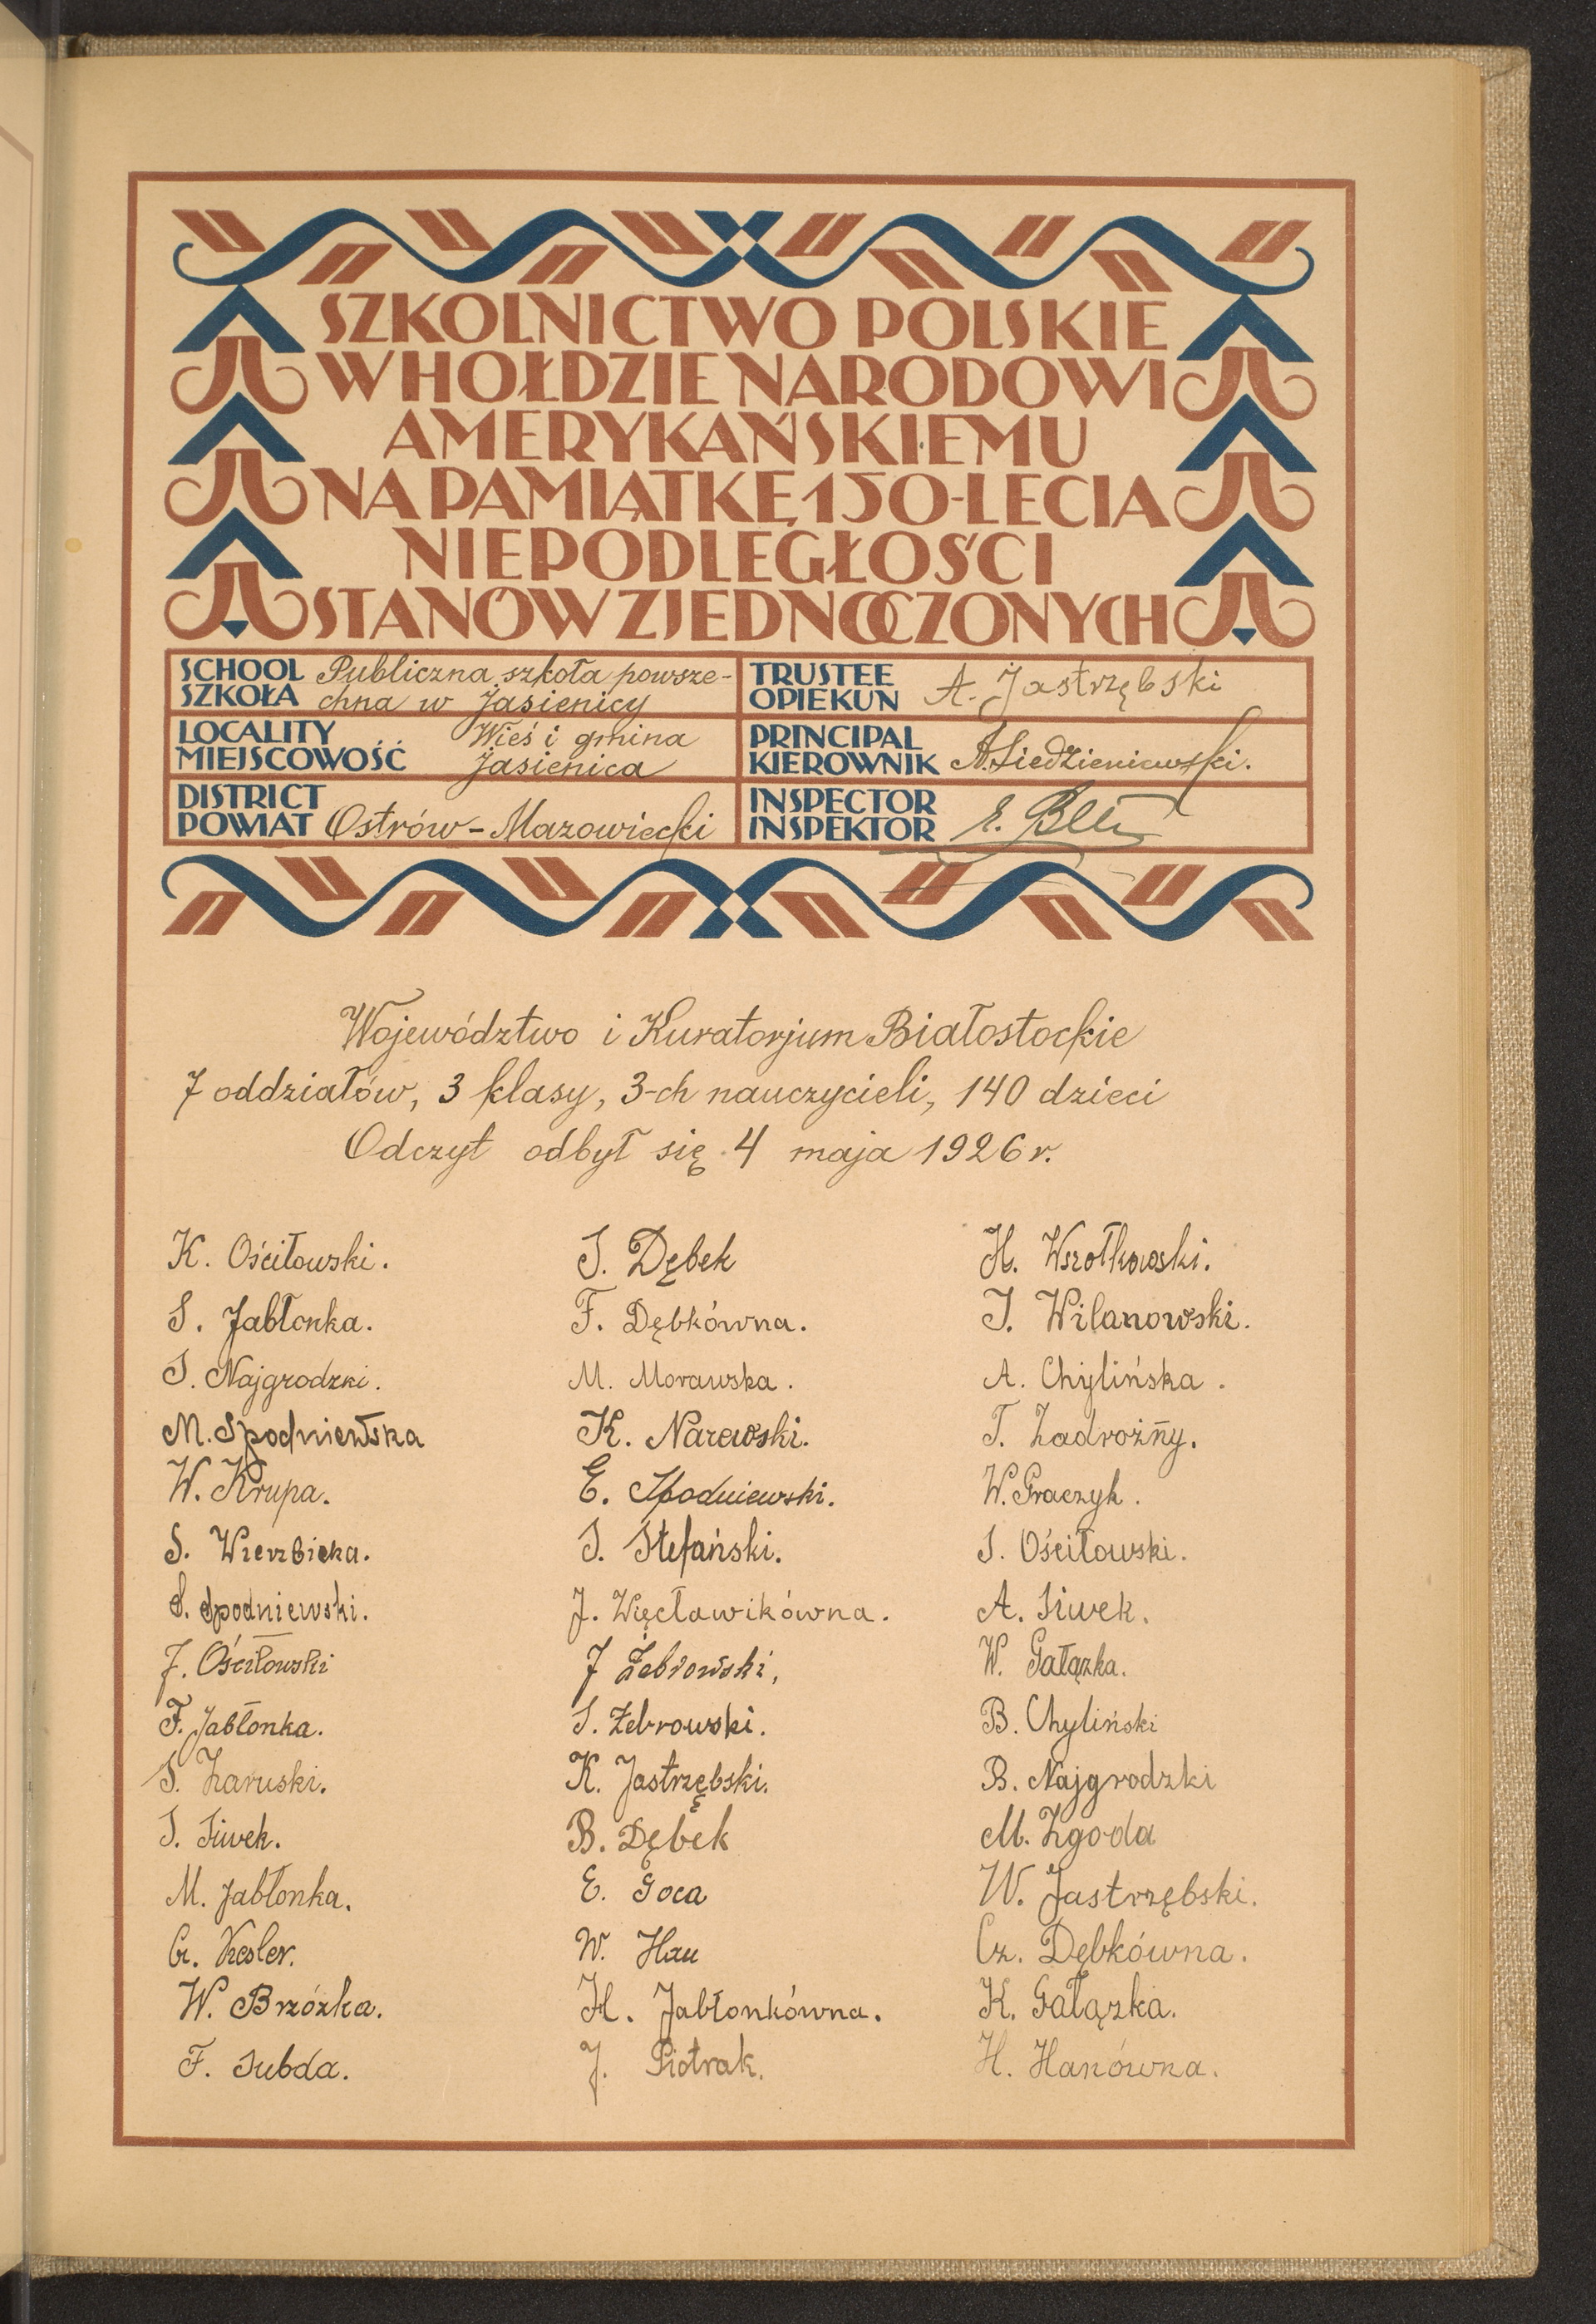 SZKOLNICTWO POLSKIE
W HOŁDZIE NARODOWI
AMERYKAŃSKIEMU
NA PAMIĄTKĘ 150-LECIA
NIEPODLEGŁOŚCI
STANÓW ZJEDNOCZONYCH
SCHOOL
SZKOŁA
Publiczna szkoła powsze-
chna w Jasienicy
TRUSTEE
OPIEKUN
A. Jastrzębski
LOCALITY
MIEJSCOWOŚĆ
Wieś i gmina
Jasienica
PRINCIPAL
KIEROWNIK
A. Siedzieniewski.
DISTRICT
POWIAT
Ostrów-Mazowiecki
INSPECTOR
INSPEKTOR
Województwo i Kuratorjum Białostockie
7 oddziałów, 3 klasy, 3-ch nauczycieli, 140 dzieci
Odczyt odbył się 4 maja 1926 r.
K. Ościłowski.
S. Jabłonka.
S. Najgrodzki.
M. Spodniewska
W. Krupa.
S. Wierzbicka.
S. Spodniewski.
J. Ościłowski
F. Jabłonka.
S. Zaruski.
S. Siwek.
M. Jabłonka.
G. Kesler.
W. Brzózka.
F. Subda.
S. Dębek
F. Dębkówna.
M. Morawska.
K. Narewski.
E. Spodniewski.
S. Stefański.
J. Więcławikówna.
J Żebrowski,
S. Żebrowski.
K. Jastrzębski.
B. Dębek
E. Goca
W. Hau
H. Jabłonkówna.
J. Piotrak.
H. Wszołkowski.
J. Wilanowski.
A. Chylińska.
T. Zadrożny.
W. Graczyk.
S. Ościłowski.
A. Siwek.
W. Gałązka.
B. Chyliński
B. Najgrodzki
M. Zgoda
W. Jastrzębski.
Cz. Dębkówna.
K. Gałązka.
H. Hanówna.